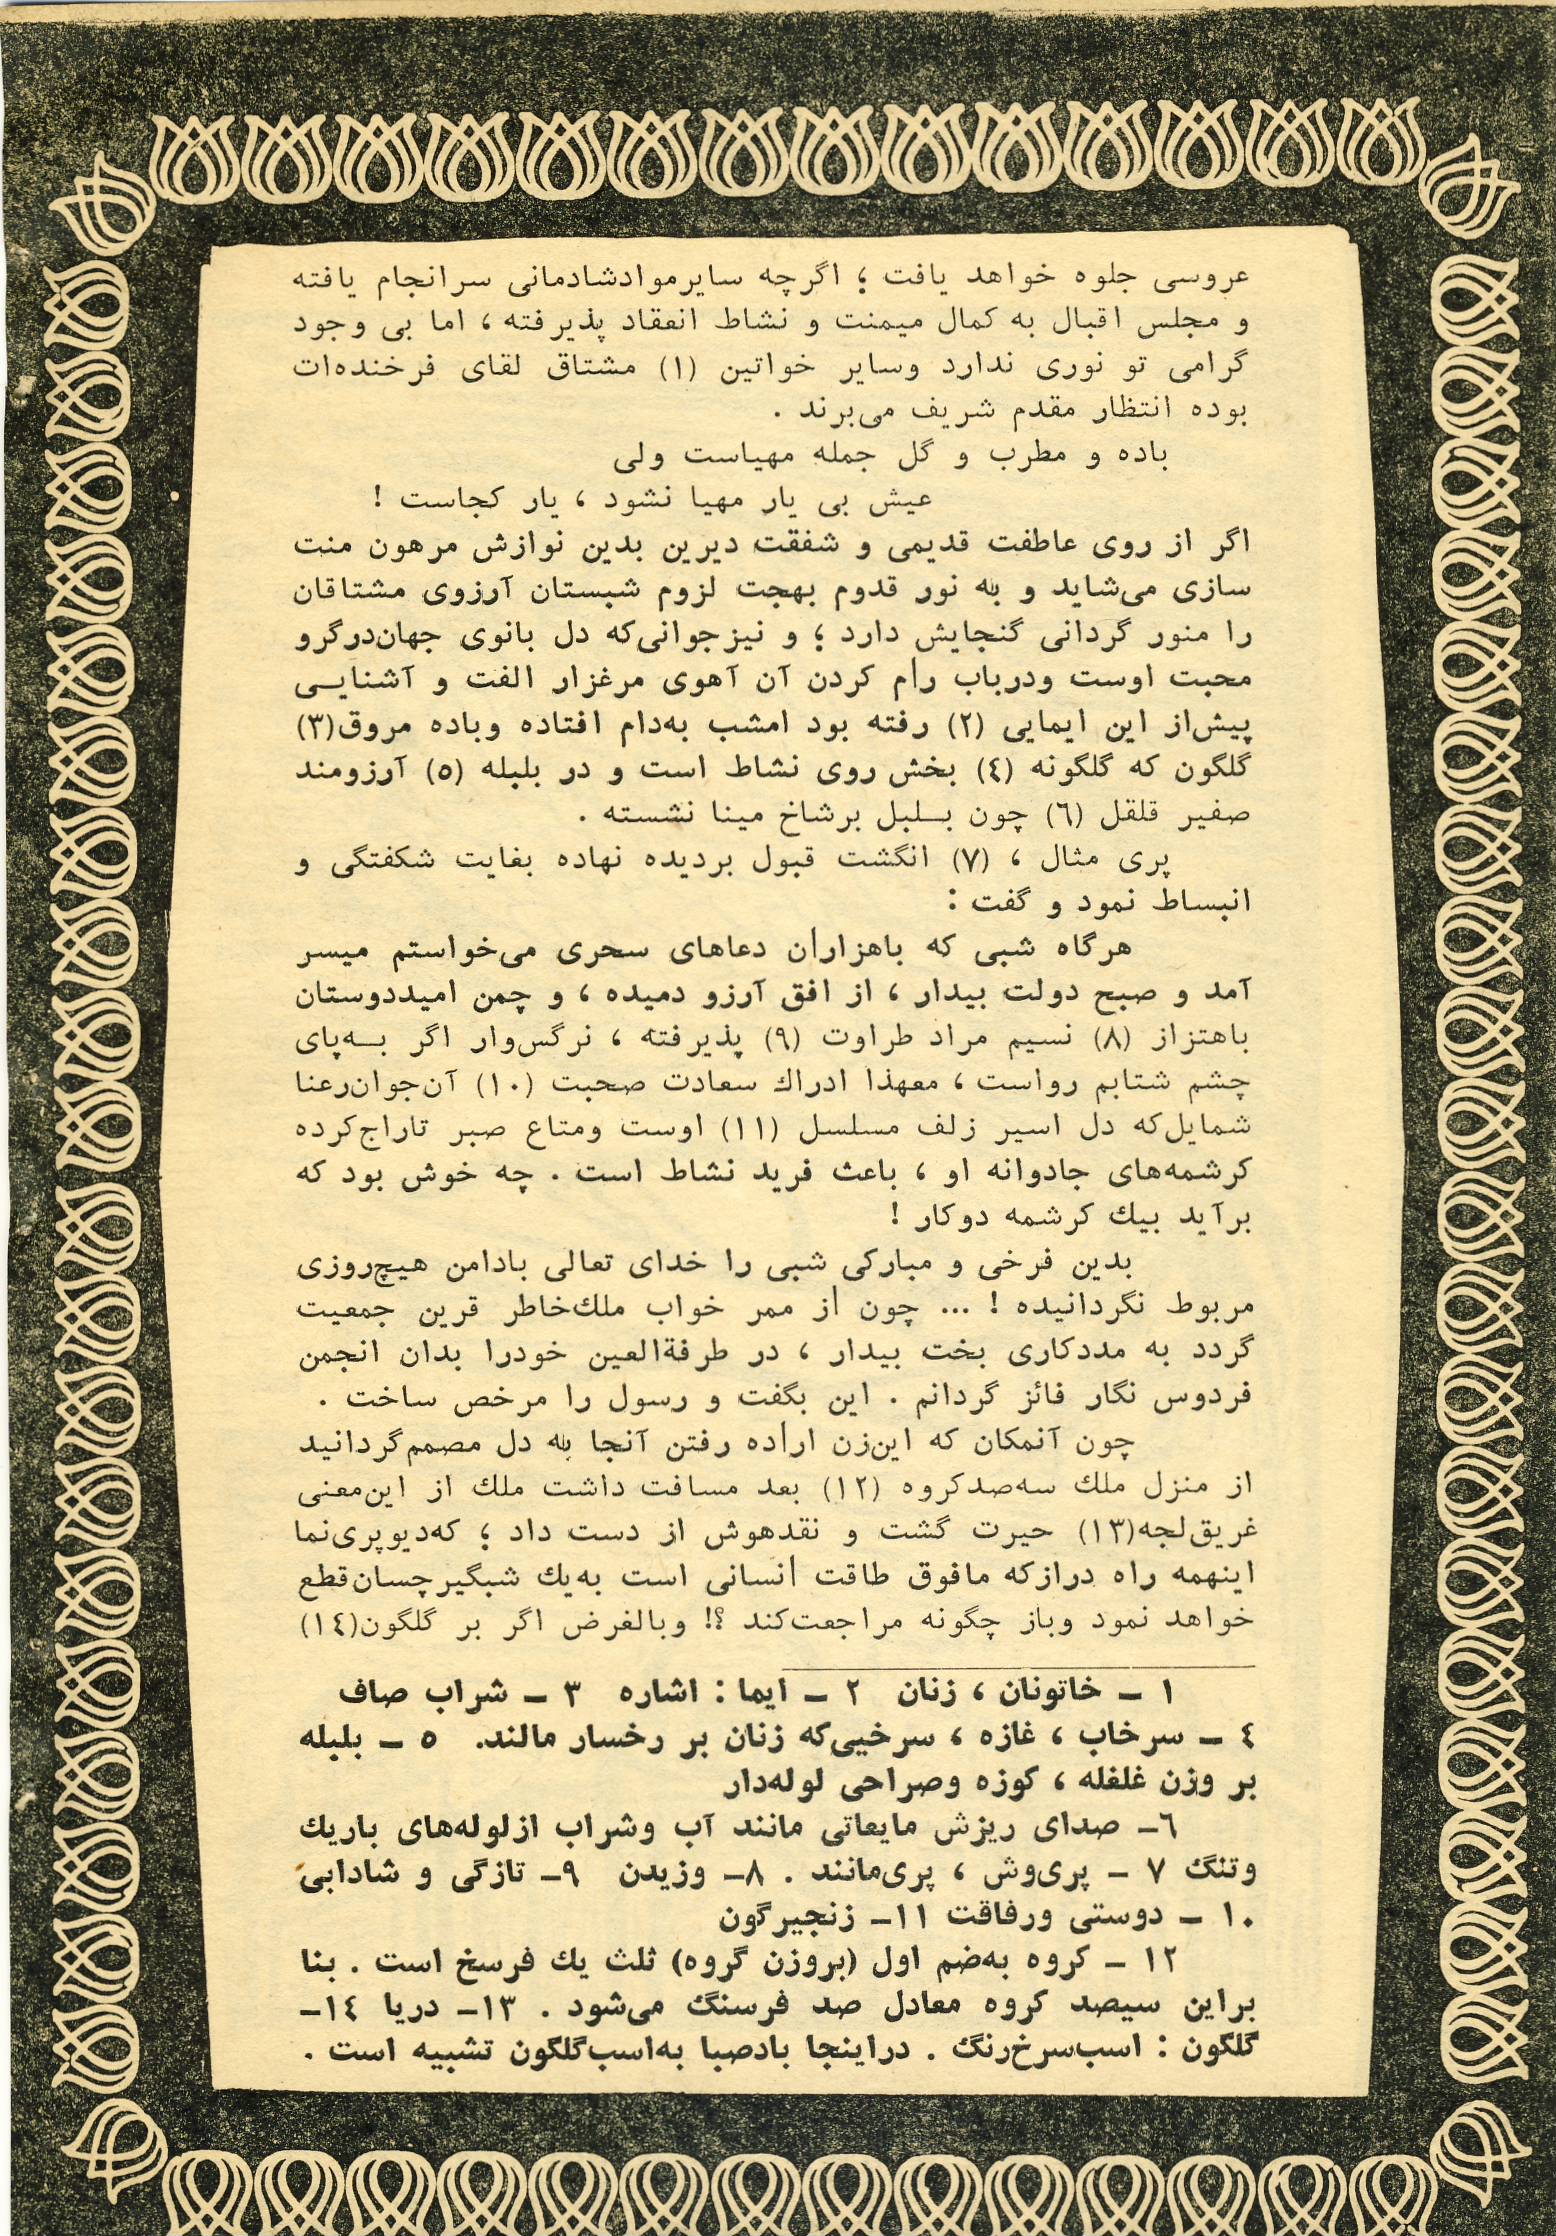 عروسی جلوه خواهد یافت ؛ اگرچه سایرموادشادمانی سرانجام یافته
و مجلس اقبال به کمال میمنت و نشاط انعقاد پذیرفته ، اما بی وجود
گرامی تو نوری ندارد وسایر خواتین (۱) مشتاق لقای فرخنده‌ات
بوده انتظار مقدم شریف می‌برند .
باده و مطرب و گل جمله مهیاست ولی
عیش بی یار مهیا نشود ، یار کجاست !
اگر از روی عاطفت قدیمی و شفقت دیرین بدین نوازش مرهون منت
سازی می‌شاید و به نور قدوم بهجت لزوم شبستان آرزوی مشتاقان
را منور گردانی گنجایش دارد ؛ و نیزجوانی‌که دل بانوی جهان‌درگرو
محبت اوست ودرباب رام کردن آن آهوی مرغزار الفت و آشنایـی
پیش‌از این ایمایی (۲) رفته بود امشب به‌دام افتاده وباده مروق(۳)
گلگون که گلگونه (٤) بخش روی نشاط است و در بلبله (٥) آرزومند
صفیر قلقل (٦) چون بـلبل برشاخ مینا نشسته .
پری مثال ، (۷) انگشت قبول بردیده نهاده بغایت شکفتگی و
انبساط نمود و گفت :
هرگاه شبی که باهزاران دعاهای سحری می‌خواستم میسر
آمد و صبح دولت بیدار ، از افق آرزو دمیده ، و چمن امیددوستان
باهتزاز (۸) نسیم مراد طراوت (۹) پذیرفته ، نرگس‌وار اگر بـه‌پای
چشم شتابم رواست ، معهذا ادراك سعادت صحبت (۱۰) آن‌جوان‌رعنا
شمایل‌که دل اسیر زلف مسلسل (۱۱) اوست ومتاع صبر تاراج‌کرده
کرشمه‌های جادوانه او ، باعث فرید نشاط است . چه خوش بود که
برآید بیك کرشمه دوکار !
بدین فرخی و مبارکی شبی را خدای تعالی بادامن هیچ‌روزی
مربوط نگردانیده ! ... چون از ممر خواب ملك‌خاطر قرین جمعیت
گردد به مددکاری بخت بیدار ، در طرفةالعین خودرا بدان انجمن
فردوس نگار فائز گردانم . این بگفت و رسول را مرخص ساخت .
چون آنمکان که این‌زن اراده رفتن آنجا به دل مصمم‌گردانید
از منزل ملك سه‌صدکروه (۱۲) بعد مسافت داشت ملك از این‌معنی
غریق‌لجه(۱۳) حیرت گشت و نقدهوش از دست داد ؛ که‌دیوپری‌نما
اینهمه راه درازکه مافوق طاقت انسانی است به‌یك شبگیرچسان‌قطع
خواهد نمود وباز چگونه مراجعت‌کند ؟! وبالفرض اگر بر گلگون(۱٤)
۱ ـ خاتونان ، زنان ۲ ـ ایما : اشاره ۳ ـ شراب صاف
٤ ـ سرخاب ، غازه ، سرخیی‌که زنان بر رخسار مالند. ٥ ـ بلبله
بر وزن غلغله ، کوزه وصراحی لوله‌دار
٦ـ صدای ریزش مایعاتی مانند آب وشراب ازلوله‌های باریك
وتنگ ۷ ـ پری‌وش ، پری‌مانند . ۸ـ وزیدن ۹ـ تازگی و شادابی
۱۰ ـ دوستی ورفاقت ۱۱ـ زنجیرگون
۱۲ ـ کروه به‌ضم اول (بروزن گروه) ثلث یك فرسخ است . بنا
براین سیصد کروه معادل صد فرسنگ می‌شود . ۱۳ـ دریا ۱٤ـ
گلگون : اسب‌سرخ‌رنگ . دراینجا بادصبا به‌اسب‌گلگون تشبیه است .